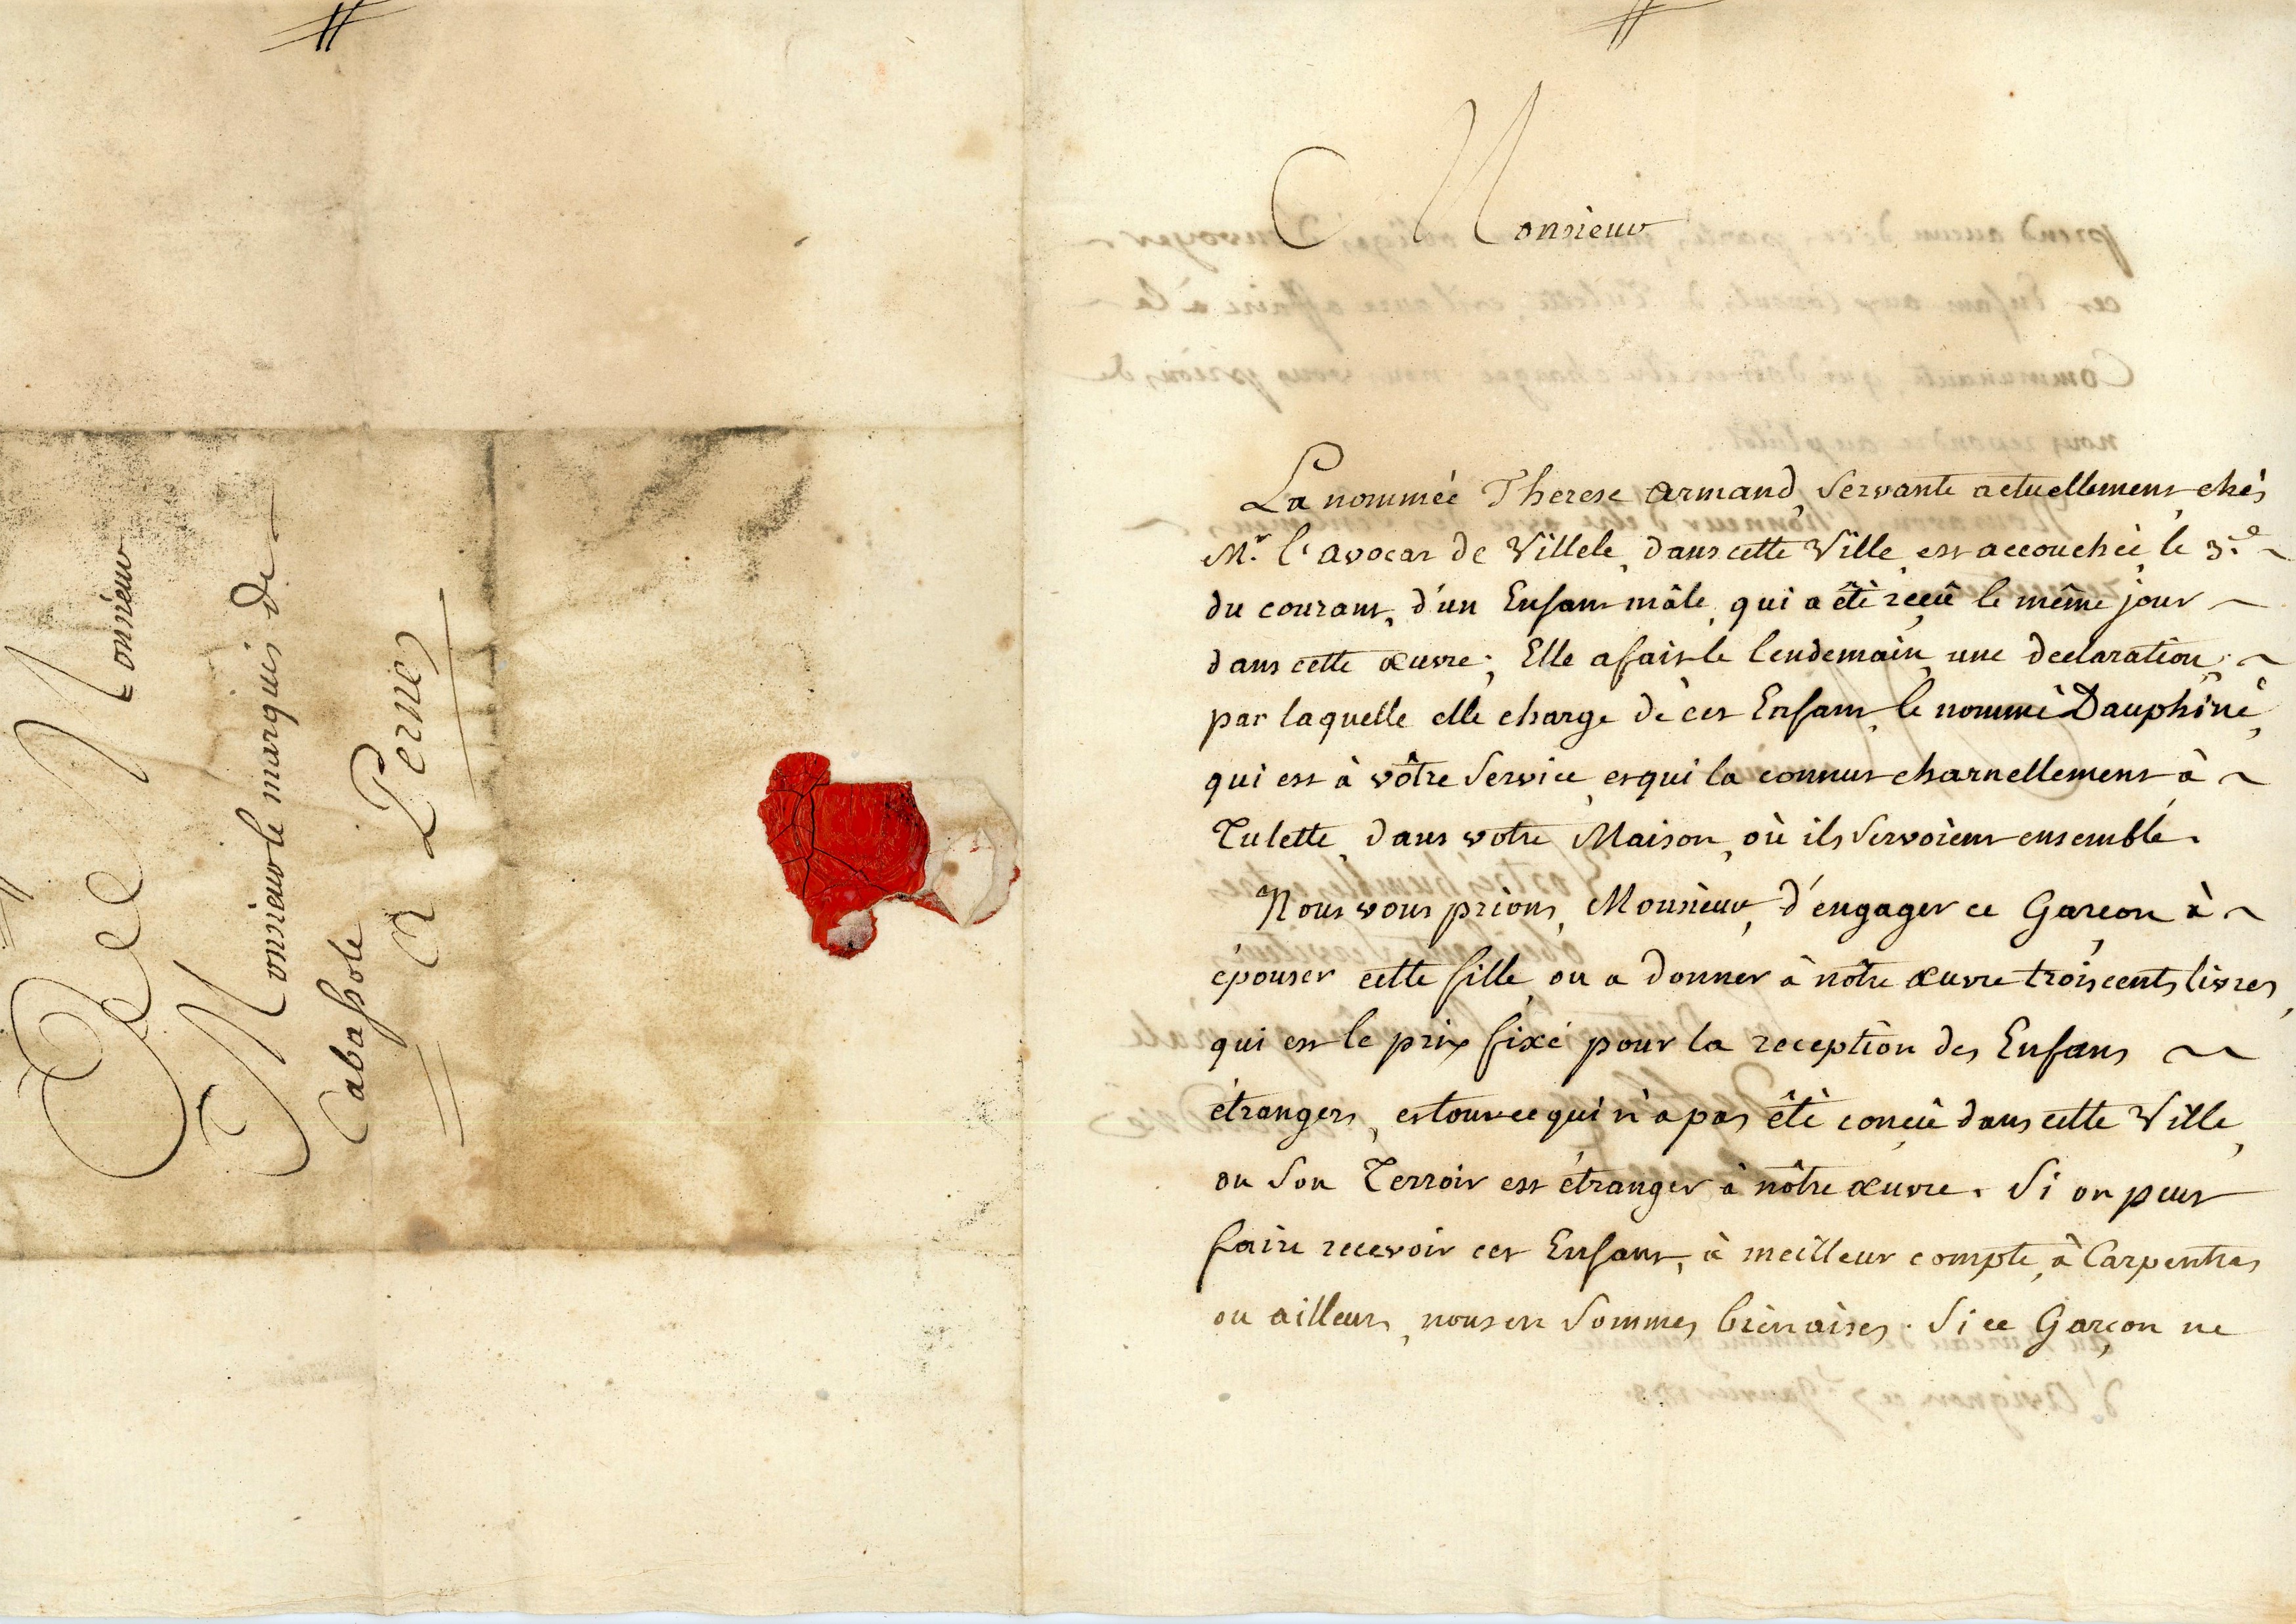 A Monsieur
Monsieur le marquis de
Cabassole
a Pernes
Monsieur
La nommée Therese armand, Servante actuellement chés
Mr. l'avocat de Villele, dans cette Ville, est accouchée, le 3.e
du courant, d'un Enfant mâle, qui a êté reçû le même jour
dans cette œuvre; Elle a fait le lendemain une declaration,
par laquelle elle charge de cet Enfant, le nommé Dauphiné,
qui est à vôtre Service, et qui la connut charnellement à
Tulette, dans votre Maison, où ils Servoient ensemble.
Nous vous prions, Monsieur, d'engager ce Garçon à
épouser cette fille, ou a donner à nôtre œuvre trois cents livres,
qui est le prix fixé pour la reception des Enfans
étrangers, et tout ce qui n'a pas êté conçû dans cette Ville,
ou Son Terroir est étranger à nôtre œuvre. Si on peut
faire recevoir cet Enfant, à meilleur compte, à Carpentras
ou ailleurs, nous en Sommes bien aises. Si ce Garçon ne